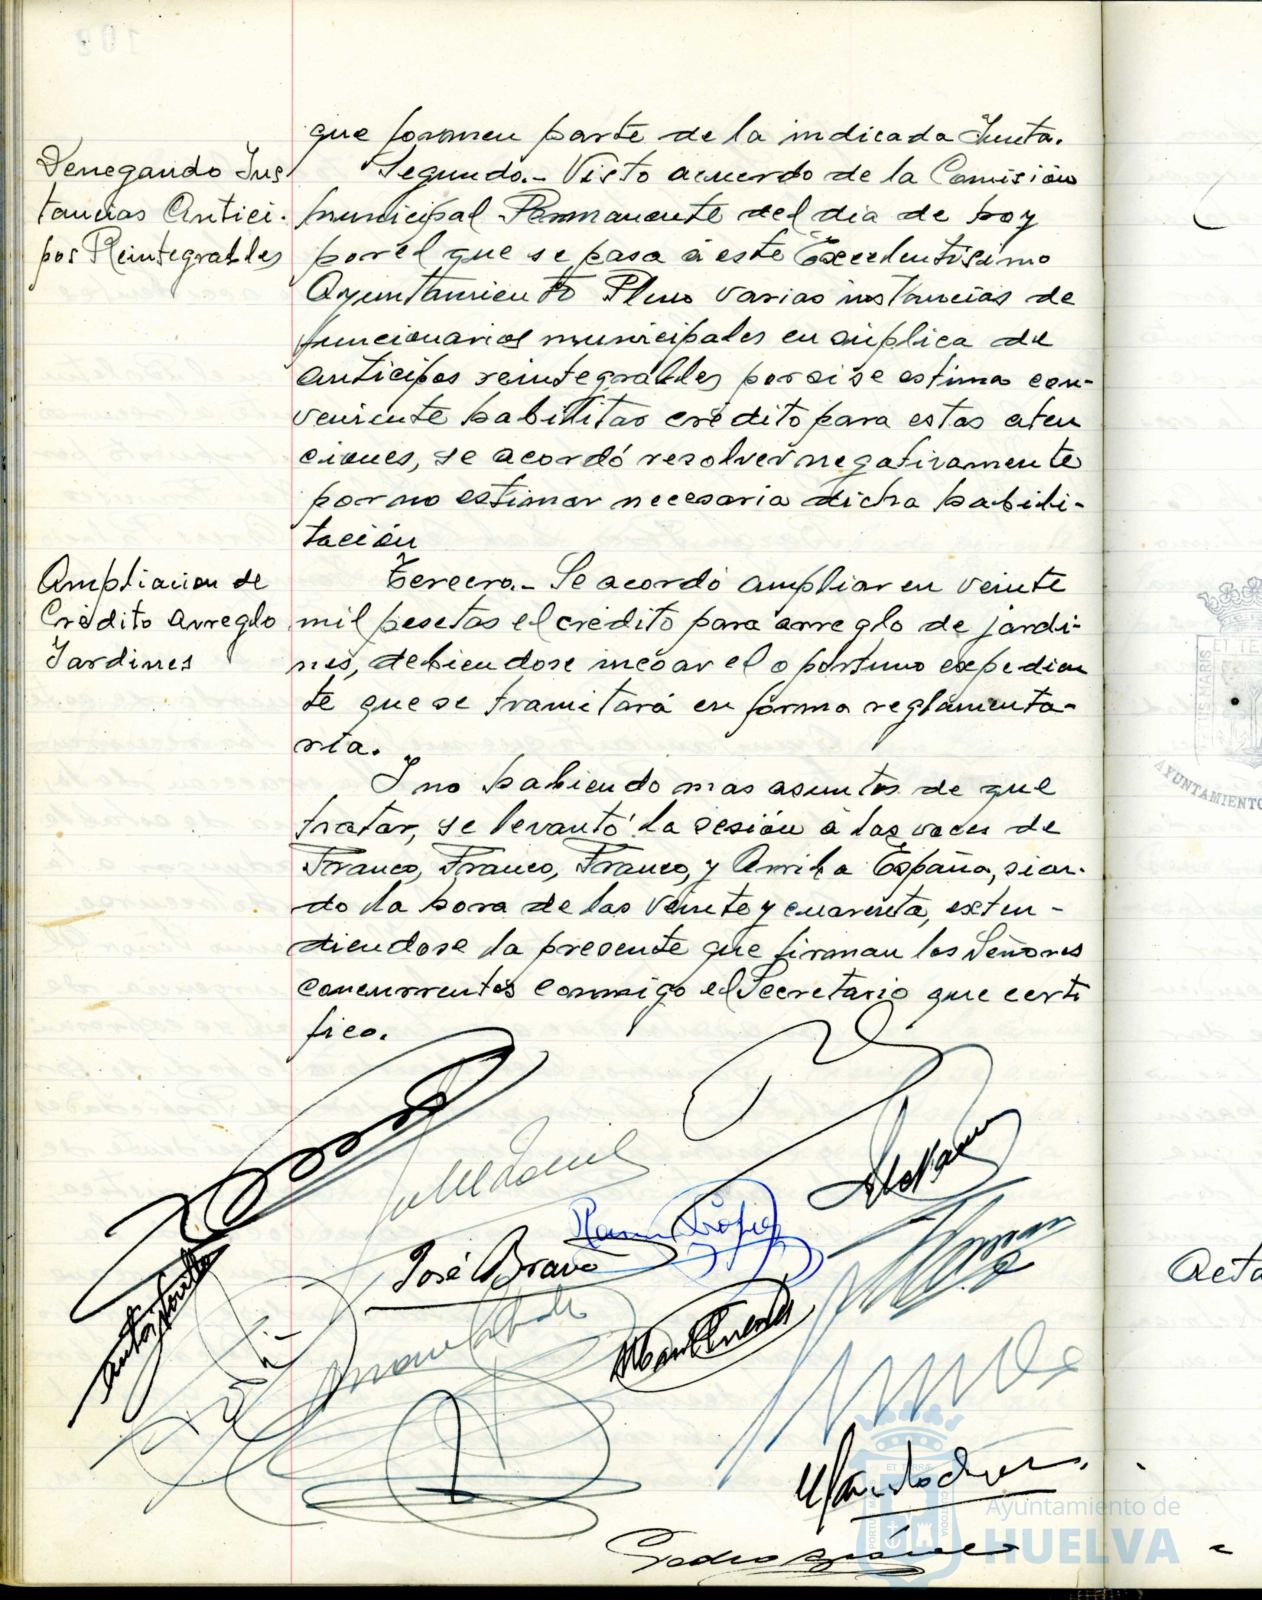 que formen parte de la indicada Junta.
Denegando Ins
tancias Antici-
pos Reintegrables
Segundo.- Visto acuerdo de la Comisión
municipal Permanente del dia de hoy
por el que se pasa á este Excelentisimo
Ayuntamiento Pleno varias instancias de
funcionarios municipales en súplica de
anticipos reintegrables por si se estima con-
veniente habilitar crédito para estas aten
ciones, se acordó resolver negativamente
por no estimar necesaria dicha habili-
tación
Ampliacion de
Crédito arreglo
Jardines
Tercero.- Se acordó ampliar en veinte
mil pesetas el crédito para arreglo de jardi-
nes, debiendose incoar el oportuno expedien
te que se tramitará en forma reglamenta-
ria.
Y no habiendo mas asuntos de que
tratar, se levantó la sesión á las voces de
Franco, Franco, Franco, y Arriba España, sien-
do la hora de las veinte y cuarenta, exten-
diendose la presente que firman los Señores
concurrentes conmigo el Secretario que certi
fico.
José Bravo
Acta
AYUNTAMIENTO
Ayuntamiento de
HUELVA